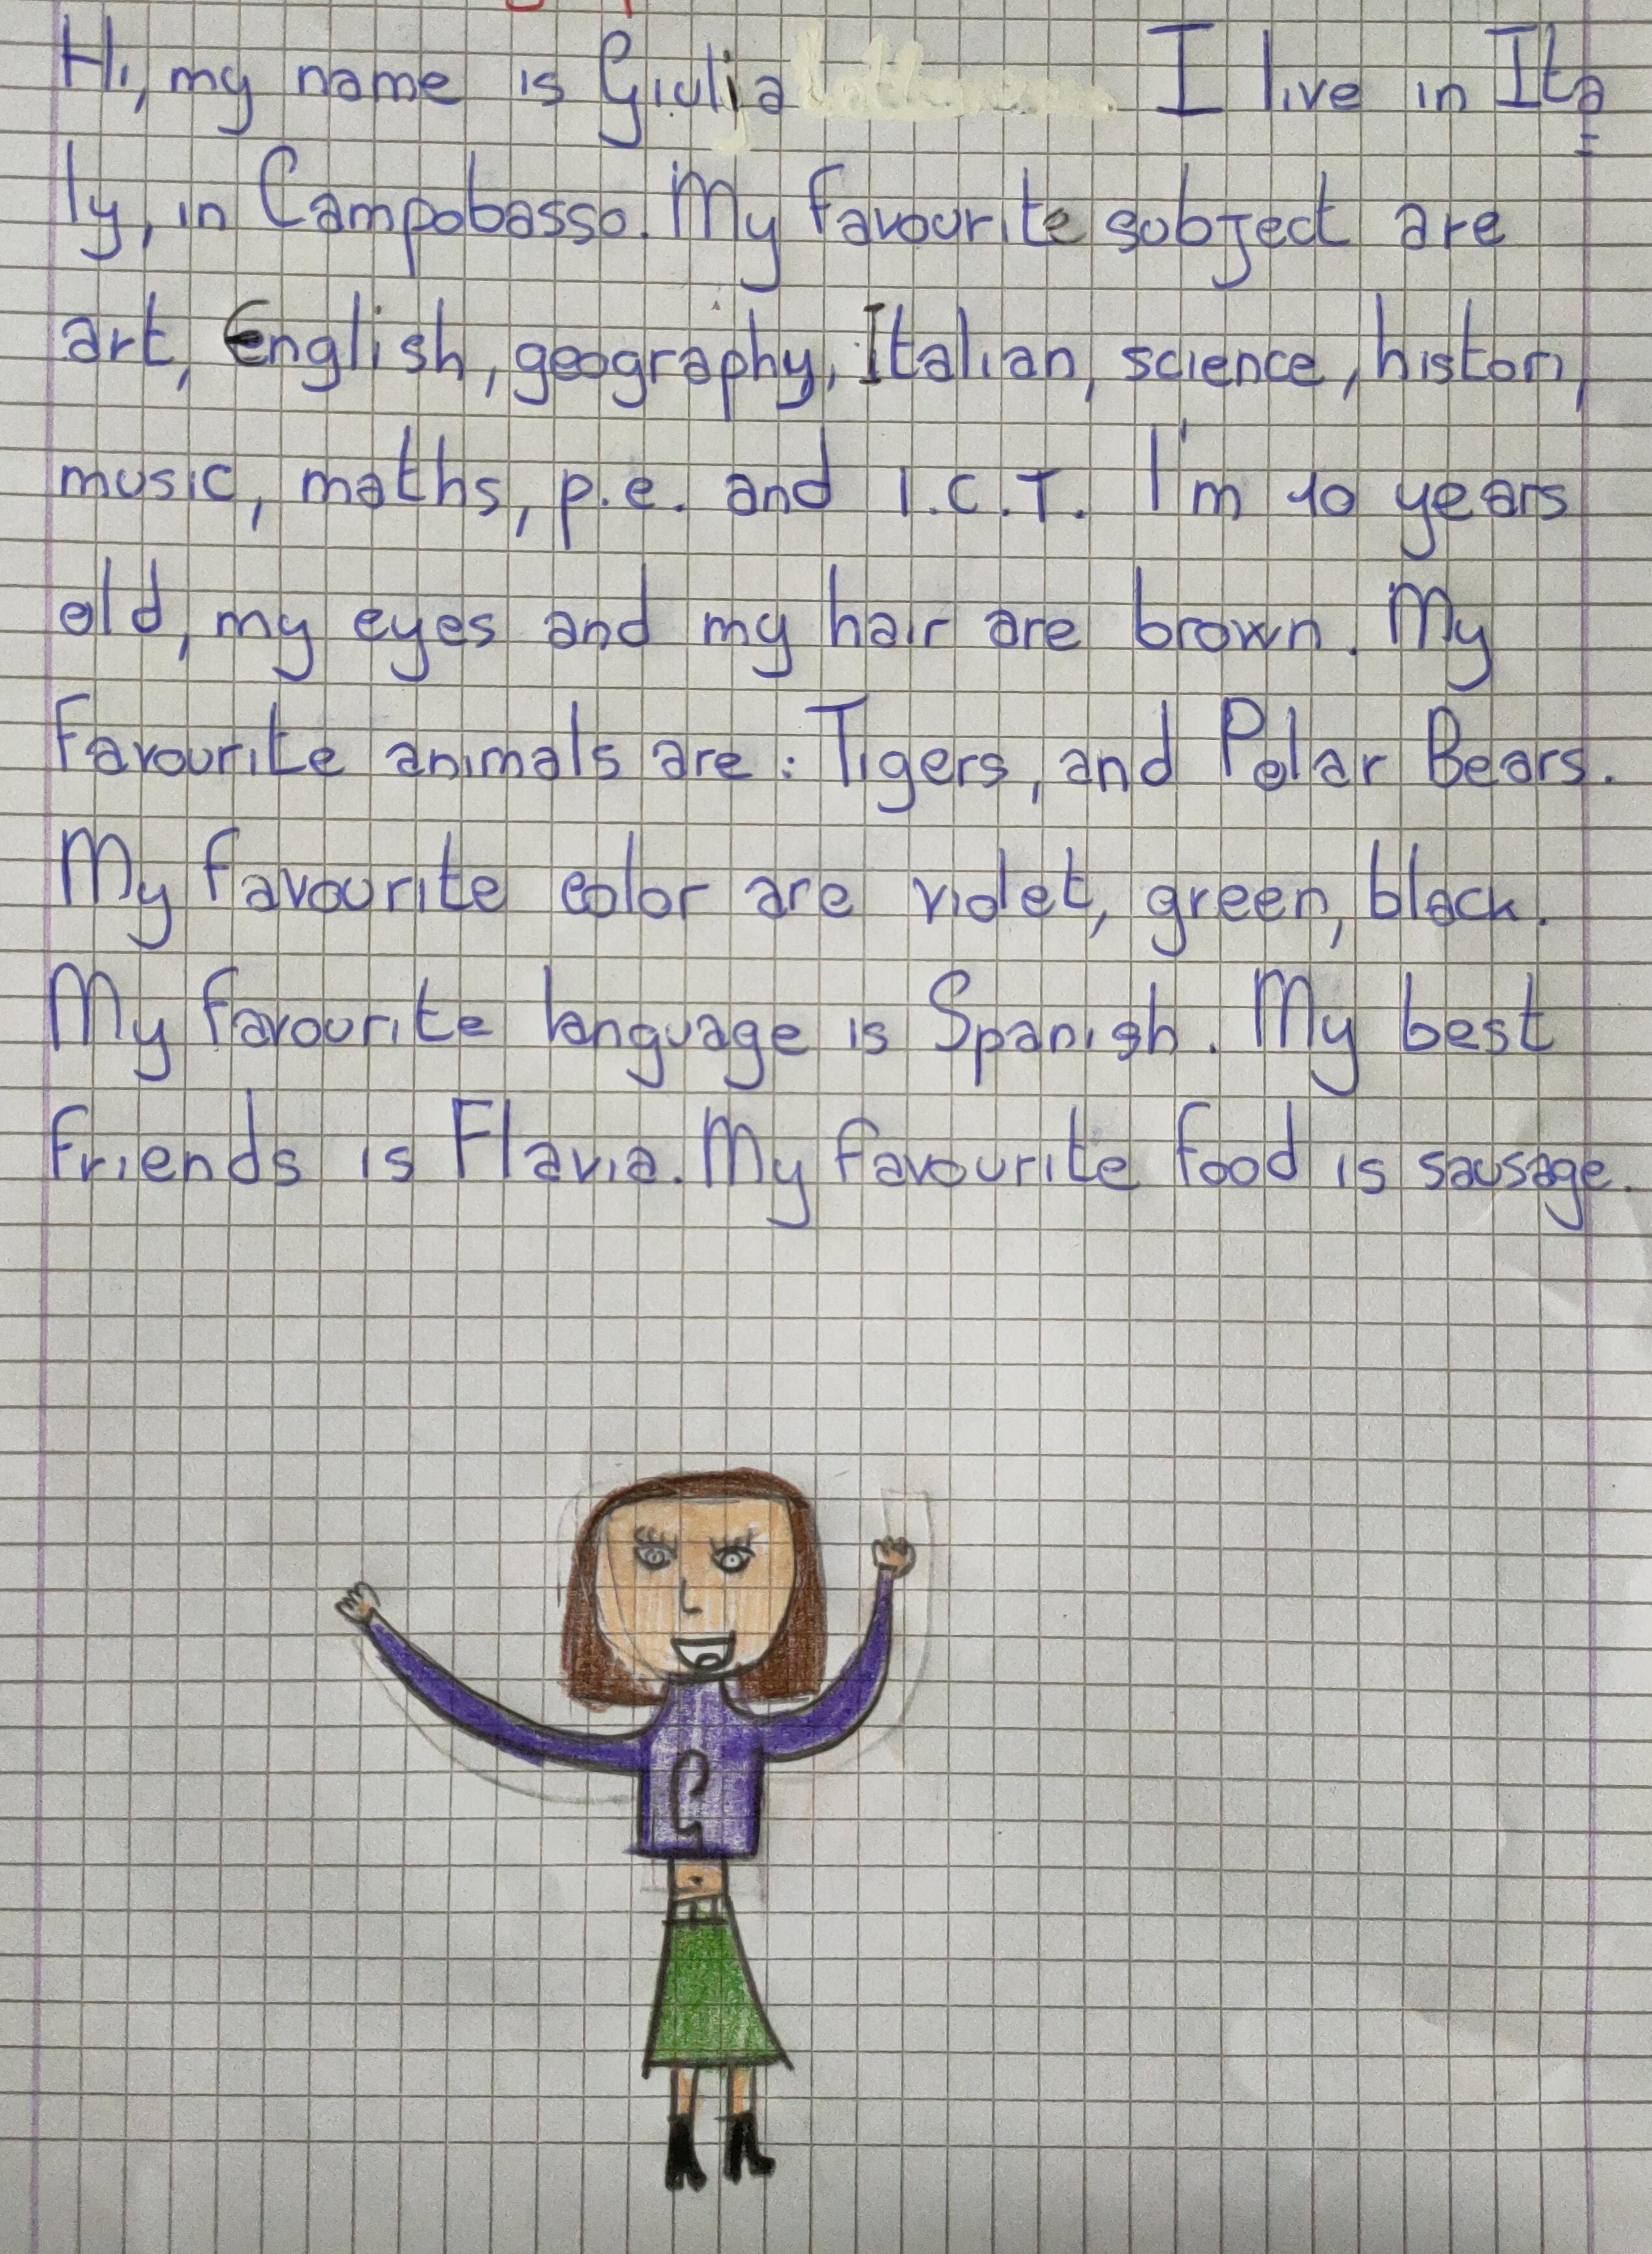 Hi, my name is Giulia I live in Ita=
ly, in Campobasso. My favourite subject are
art, English, geography, Italian, science, histori,
music, maths, p.e. and I.C.T. I'm 10 years
old, my eyes and my hair are brown. My
Favourite animals are: Tigers, and Polar Bears.
My favourite color are violet, green, black.
My favourite language is Spanish. My best
friends is Flavia. My favourite food is sausage.
G